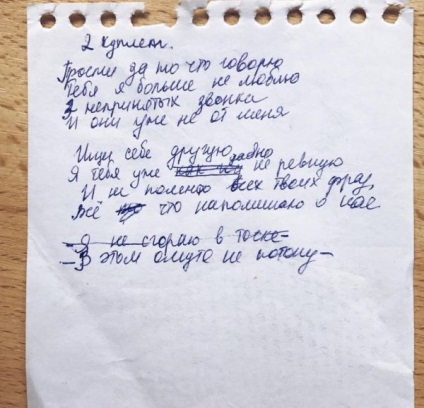 2 куплет.
Прости за то что говорю
Тебя я больше не люблю
3 непринятых звонка
И они уже не от меня
Ищи себе другую, давно
Я тебя уже не ревную
И не помню всех твоих фраз,
Всё что напоминало о нас
Я не сгораю в тоске
В этом омуте не потону